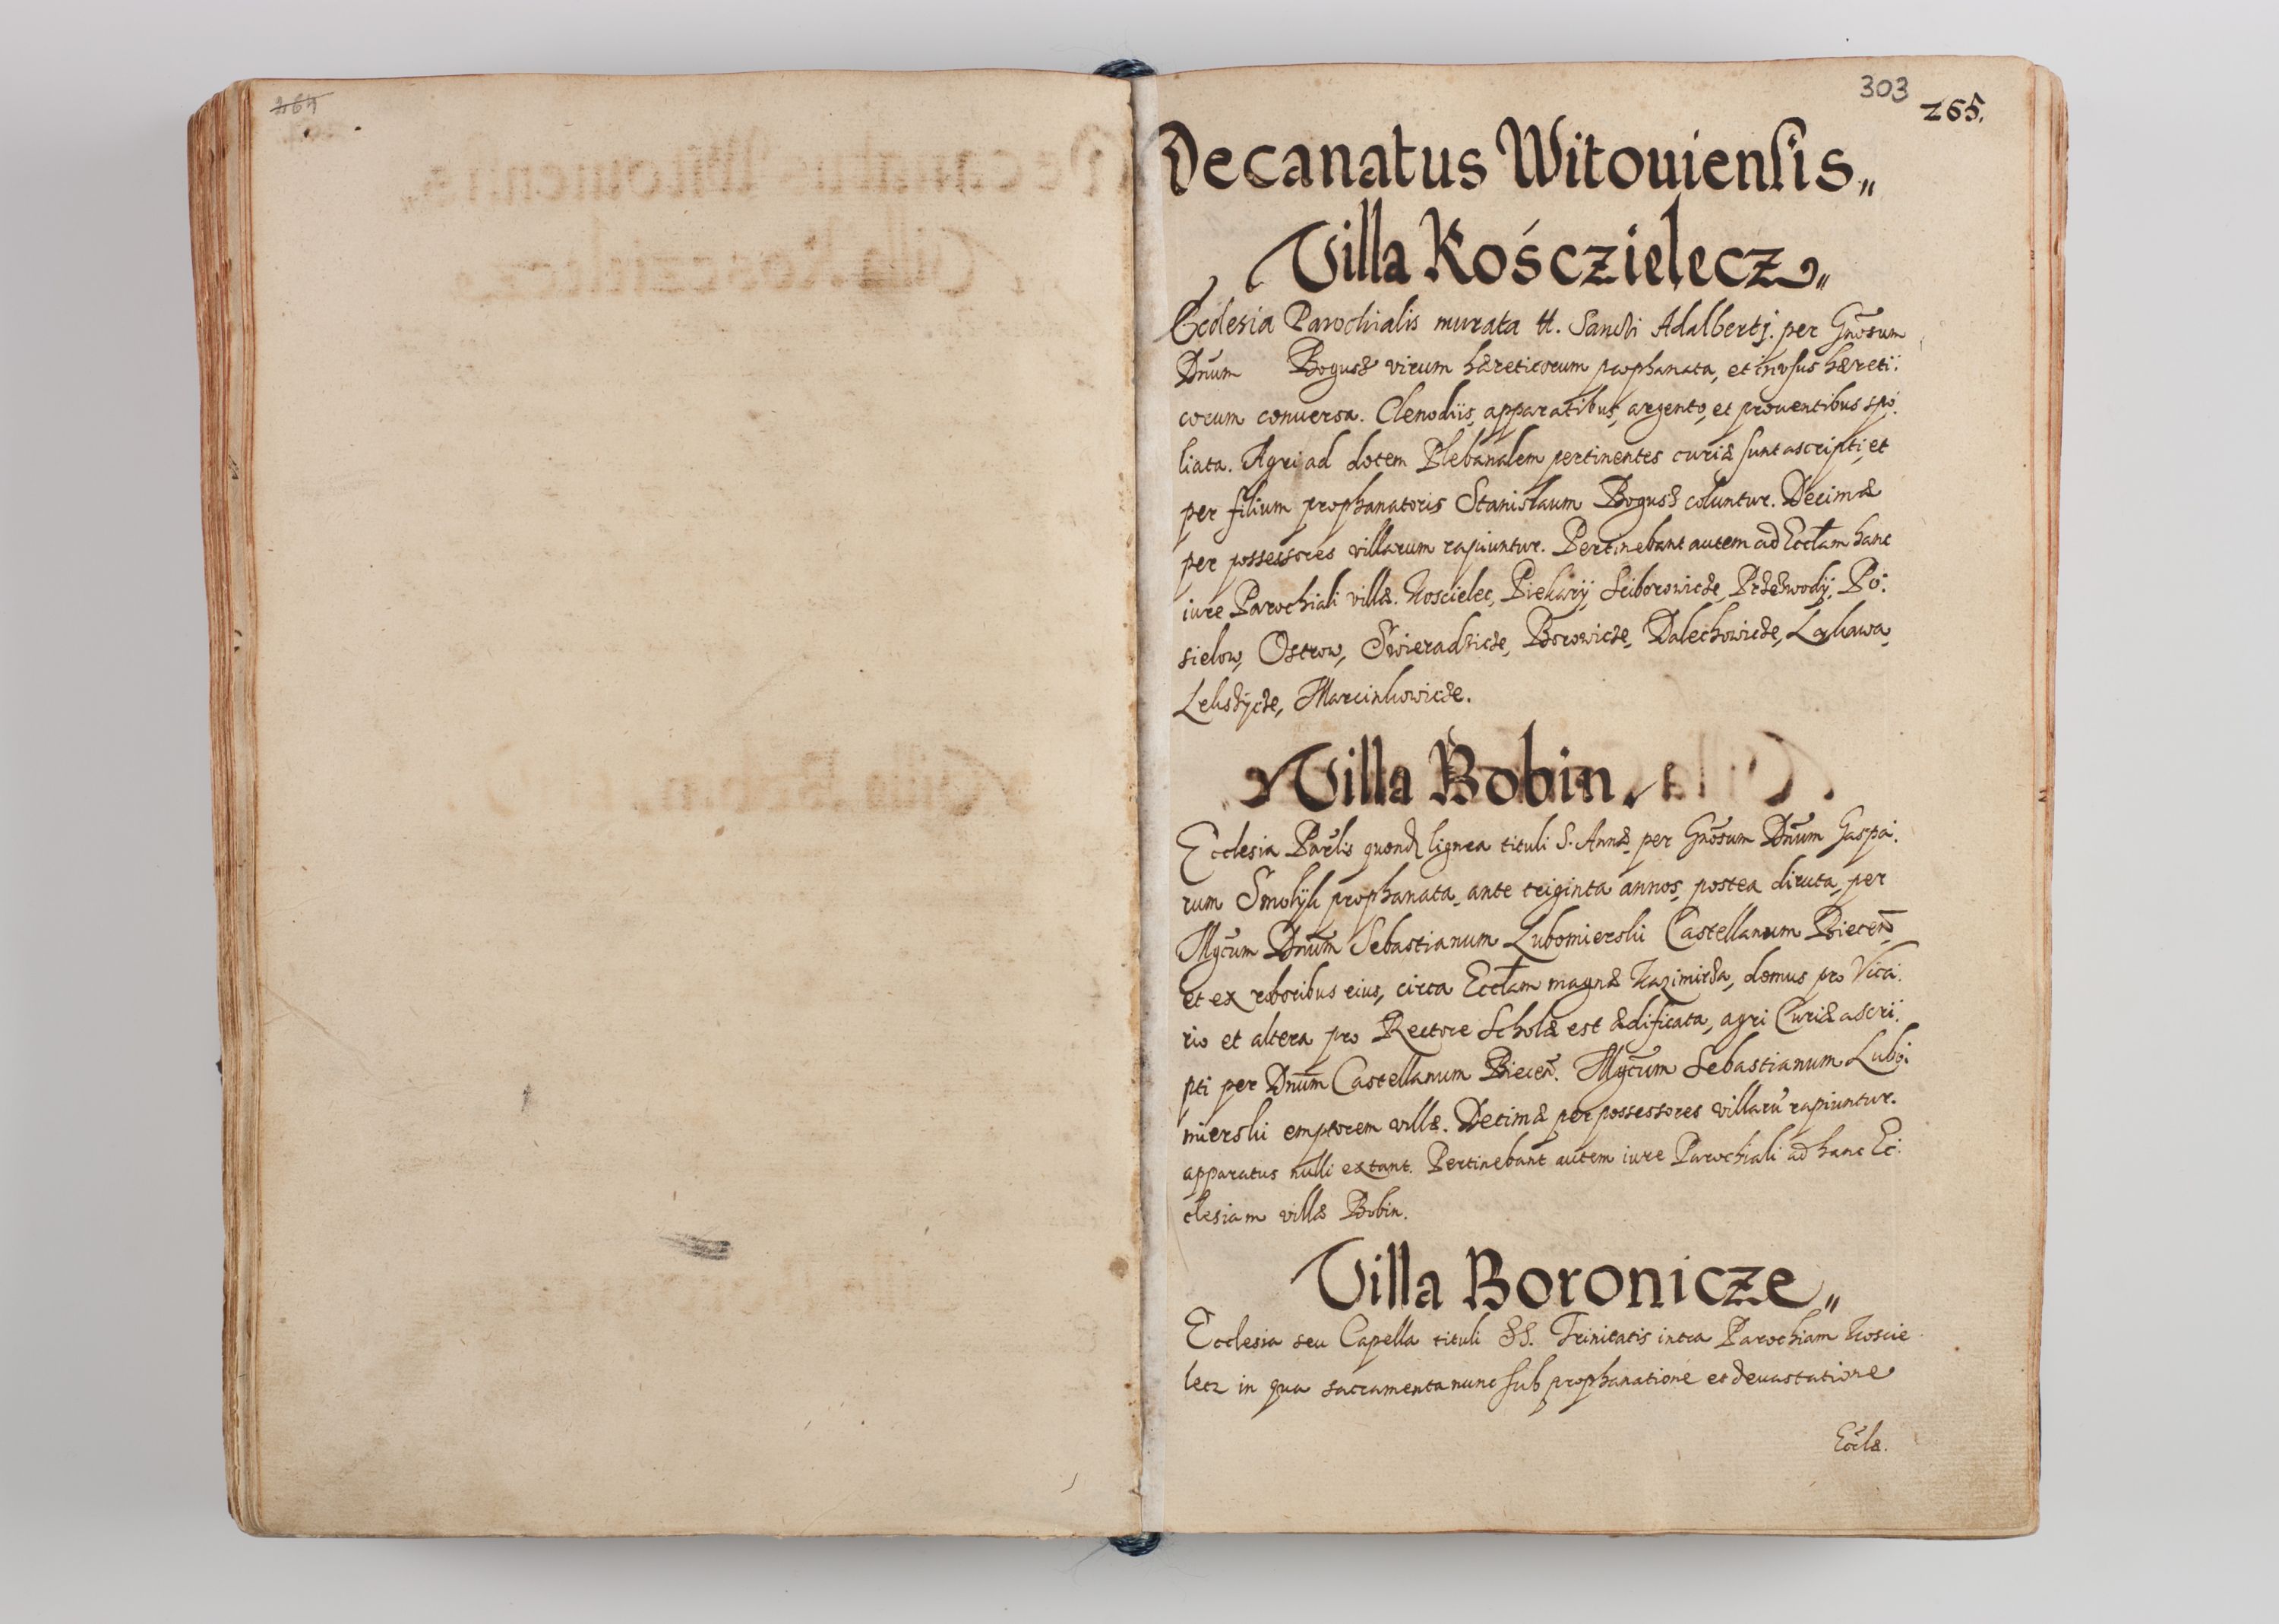 264
303
265.
Decanatus Witouiensis„
Villa Kośczielecz„
Ecclesia Parochialis murata tt. Sancti Adalbertj. per Gnõsum
Dnũm Bogusz virum hæreticorum prophanata, et in vsus hæreti:
corum conuersa. Clenodiis, apparatibus, argento, et prouentibus spo:
liata. Agri ad dotem Plebanalem pertinentes curiæ sunt ascripti, et
per filium prophanatoris Stanislaum Bogusz coluntur. Decimæ
per possessores villarum rapiuntur. Pertinebant autem ad Ecctam hanc
iure Parochiali villæ. Koscielec, Piekary, Sciborowicze, Przezwody, Po:
sielow, Ostrow, Swieradzicze, Borowicze, Dalechowicze, Lękawa,
Lekszycze, Marcinkowicze.
Villa Bobin
Ecclesia Parlis quond lignea tituli S. Annæ, per Gnõsum Dnũm Gaspa:
rum Smolyk prophanata, ante triginta annos, postea diruta, per
Mgcum Dnũm Sebastianum Lubomierski Castellanum Biecen̄
et ex roboribus eius, circa Ecctam magnæ Kazimirza, domus pro Vica:
rio et altera pro Rectore Scholæ est ædificata, agri Curiæ ascri:
pti per Dnũm Castellanum Biecen̄. Mgcum Sebastianum Lubo:
mierski emptorem villæ. Decimæ per possessores villarũ rapiuntur.
apparatus nulli extant. Pertinebant autem iure Parochiali ad hanc Ec:
clesiam villæ Bobin.
Villa Boronicze„
Ecclesia seu Capella tituli SS. Trinitatis intra Parochiam Koscie
lecz in qua sacramenta nunc sub prophanatione et deuastatione
Eccłæ.